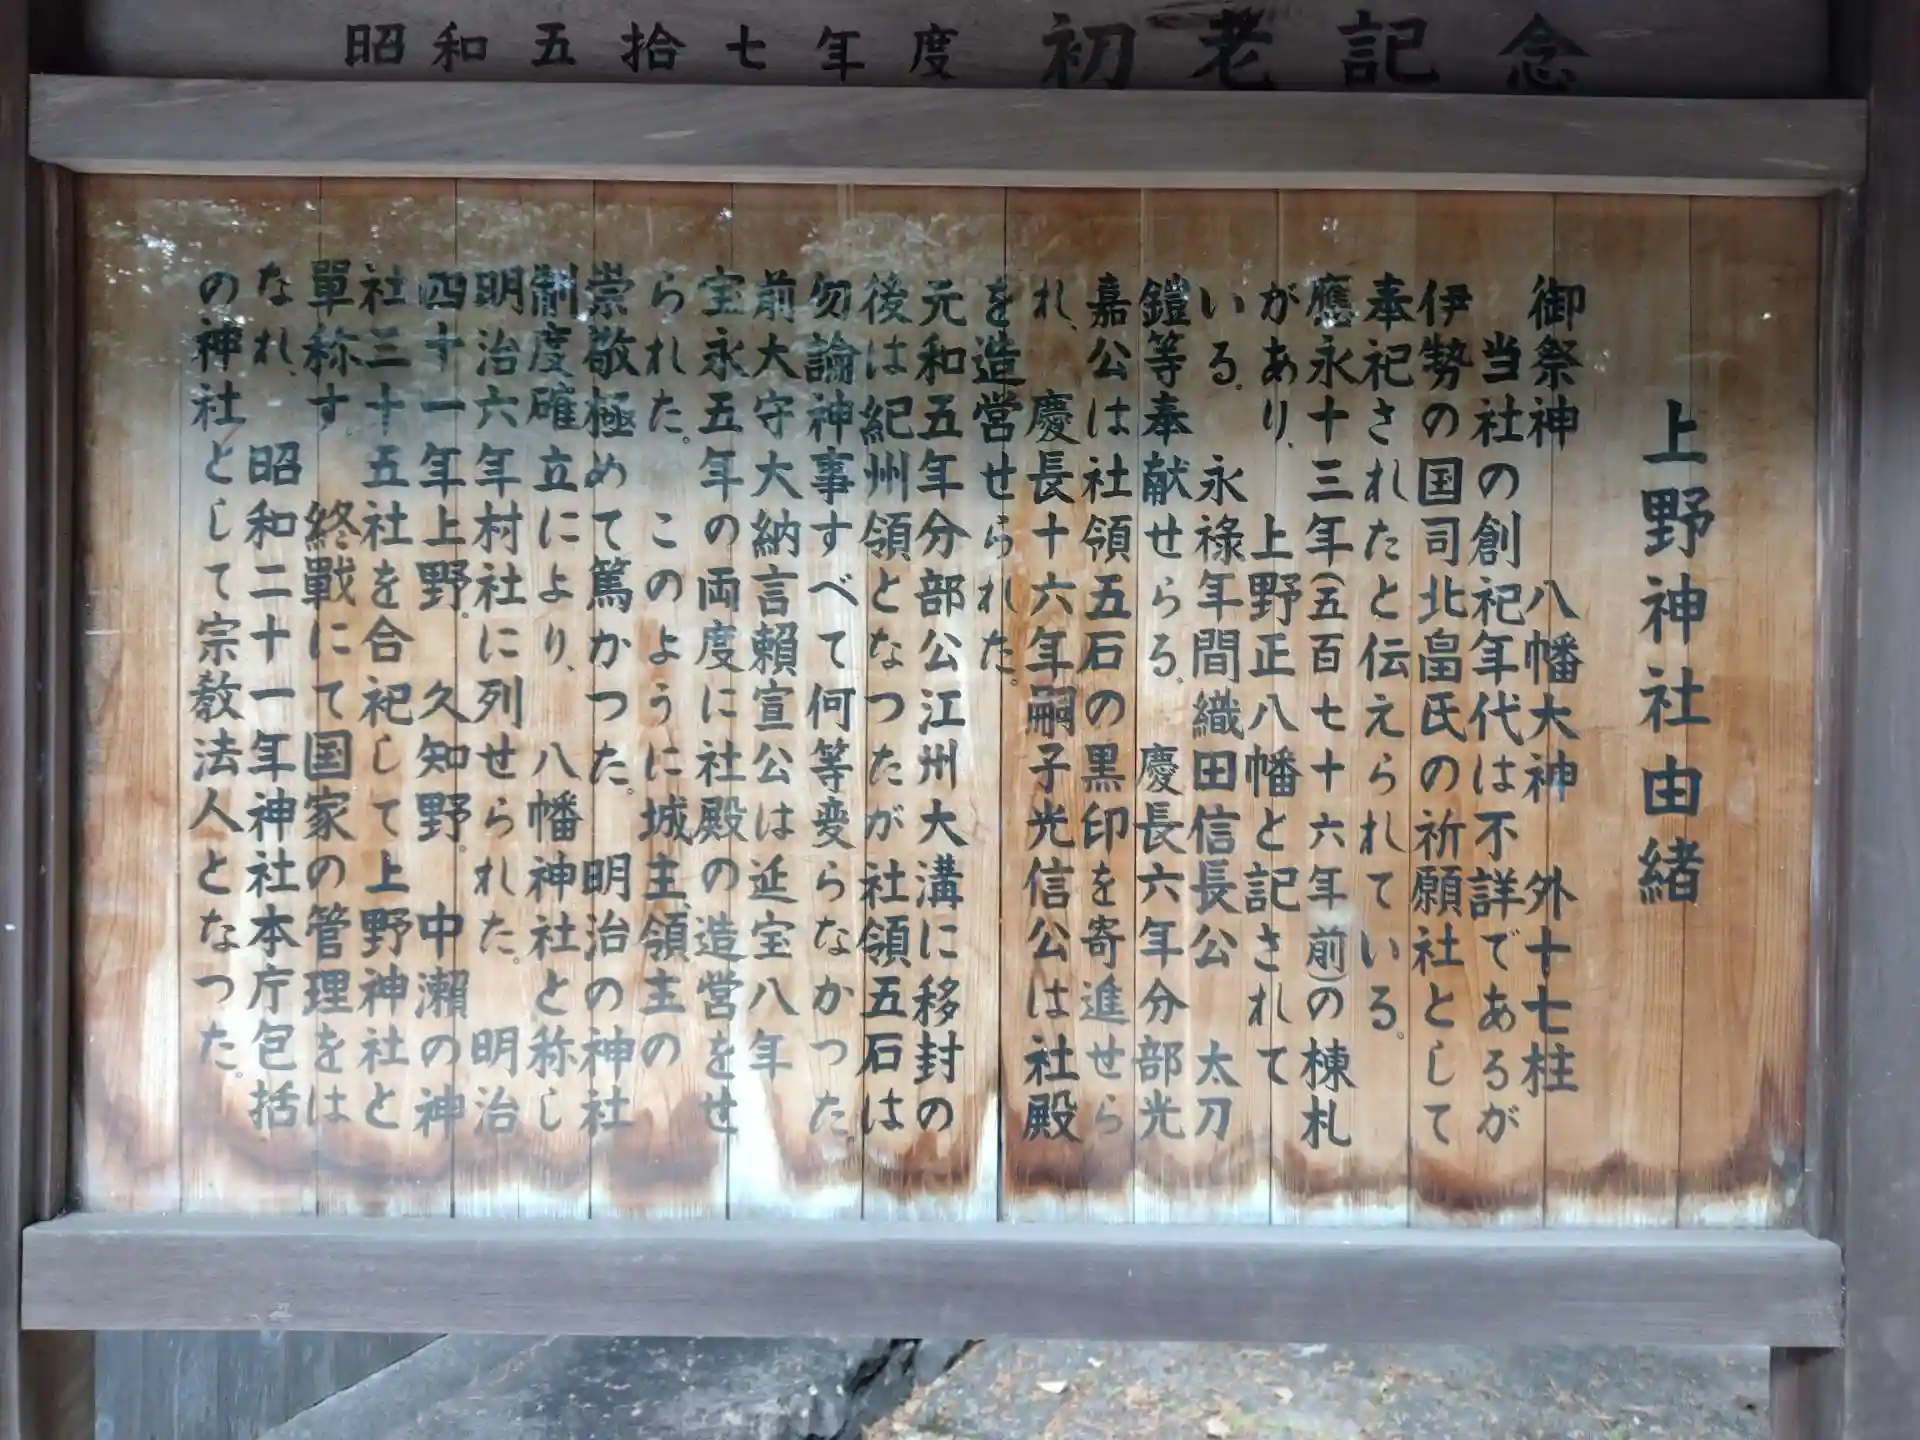 昭和五拾七年度 初老記念
上野神社由緒
御祭神 八幡大神 外十七柱
当社の創祀年代は不詳であるが
伊勢の国司北畠氏の祈願社として
奉祀されたと伝えられている。
應永十三年(五百七十六年前)の棟札
があり、上野正八幡と記されて
いる。永祿年間織田信長公 太刀
鎧等奉献せらる。慶長六年分部光
嘉公は社領五石の黒印を寄進せら
れ、慶長十六年嗣子光信公は社殿
を造営せられた。
元和五年分部公江州大溝に移封の
後は紀州領となつたが社領五石は
勿論神事すべて何等変らなかった。
前大守大納言賴宣公は延宝八年
宝永五年の両度に社殿の造営をせ
られた。このように城主、領主の
崇敬極めて篤かつた。明治の神社
制度確立により、八幡神社と称し
明治六年村社に列せられた。明治
四十一年上野、久知野。中瀬の神
社三十五社を合祀して上野神社と
單称す。終戰にて国家の管理をは
なれ、昭和二十一年神社本庁包括
の神社として宗教法人となつた。